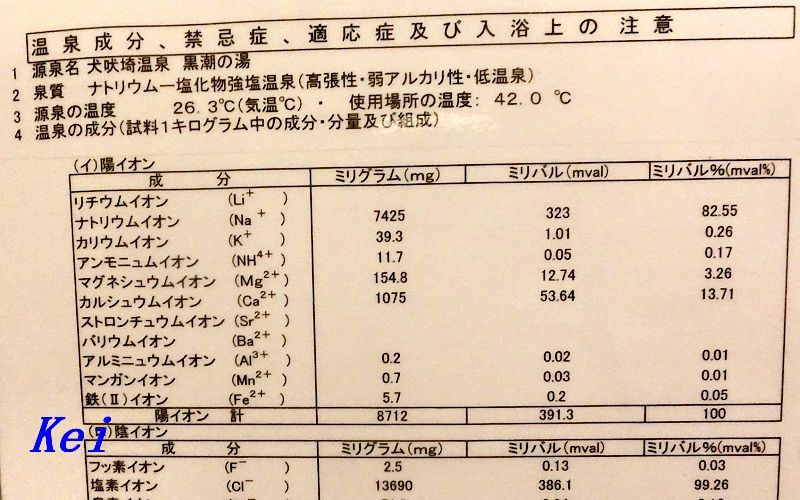 温泉成分、禁忌症、適応症及び入浴上の注意
1 源泉名 犬吠埼温泉 黒潮の湯
2 泉質 ナトリウム一塩化物強塩温泉(高張性・弱アルカリ性・低温泉)
3 源泉の温度 26.3℃(気温℃)・ 使用場所の温度: 42.0 ℃
4 温泉の成分(試料1キログラム中の成分・分量及び組成)
(イ)陽イオン
成 分 ミリグラム(mg) ミリバル(mval) ミリバル%(mval%)
リチウムイオン (Li+ )
ナトリウムイオン (Na + ) 7425 323 82.55
カリウムイオン (K+ ) 39.3 1.01 0.26
アンモニュムイオン (NH4+ ) 11.7 0.05 0.17
マグネシュウムイオン (Mg2+ ) 154.8 12.74 3.26
カルシュウムイオン (Ca2+ ) 1075 53.64 13.71
ストロンチュウムイオン (Sr2+ )
バリウムイオン (Ba2+ )
アルミニュウムイオン (Al3+ ) 0.2 0.02 0.01
マンガンイオン (Mn2+ ) 0.7 0.03 0.01
鉄(Ⅱ)イオン (Fe2+ ) 5.7 0.2 0.05
陽イオン 計 8712 391.3 100
(ロ)陰イオン
成 分 ミリグラム(mg) ミリバル(mval) ミリバル%(mval%)
フッ素イオン (F- ) 2.5 0.13 0.03
塩素イオン (Cl- ) 13690 386.1 99.26
Kei